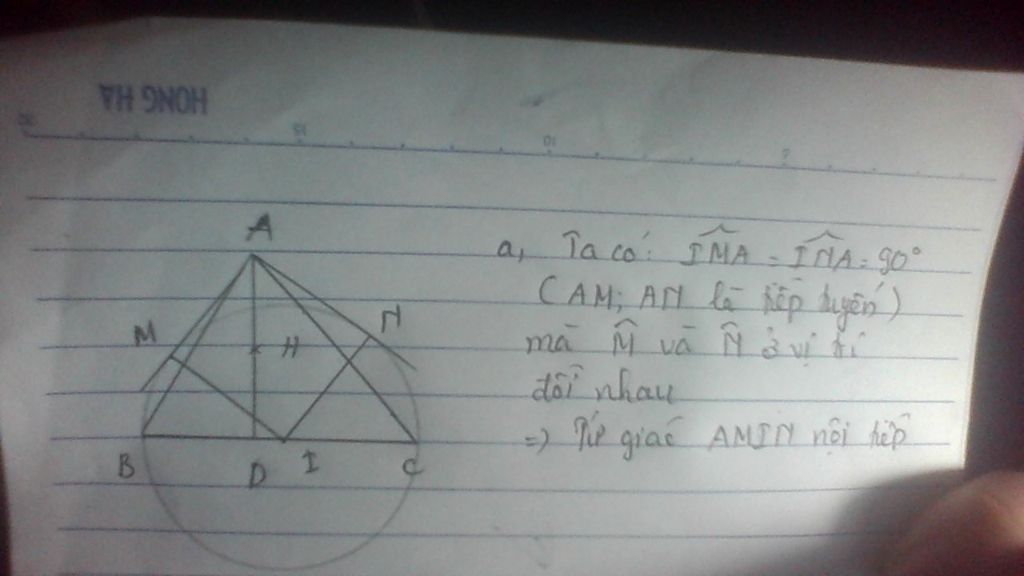 HONG HA
20
15
10
5
A
M
N
H
B
D
I
C
a, Ta có: IMA = INA = 90°
(AM; AN là tiếp tuyến)
mà M̂ và N̂ ở vị trí
đối nhau
=> Tứ giác AMIN nội tiếp